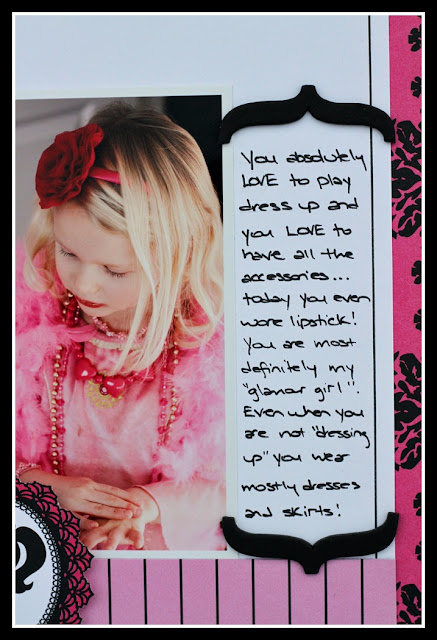 You absolutely
LOVE to play
dress up and
you LOVE to
have all the
accessories...
today you even
wore lipstick!
You are most
definitely my
"glamor girl".
Even when you
are not "dressing
up" you wear
mostly dresses
and skirts!